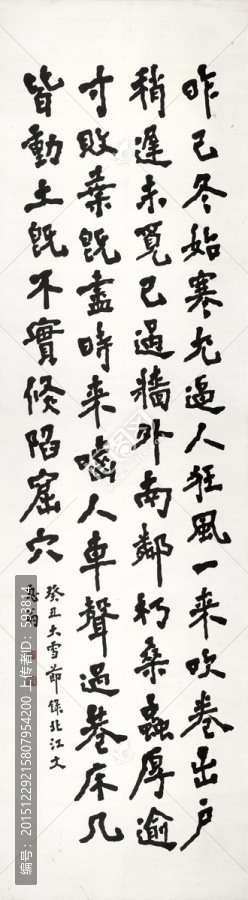 昨已冬始寒尤逼人狂風一来吹卷出戶
稍遲未覓已過牆外南鄰朽桑蟲厚逾
寸敗葉既盡時来嚙人車聲過巷床几
皆動土既不實倏陷窟穴
癸丑大雪節錄北江文
编号：20151229215807954200 上传者ID：593814